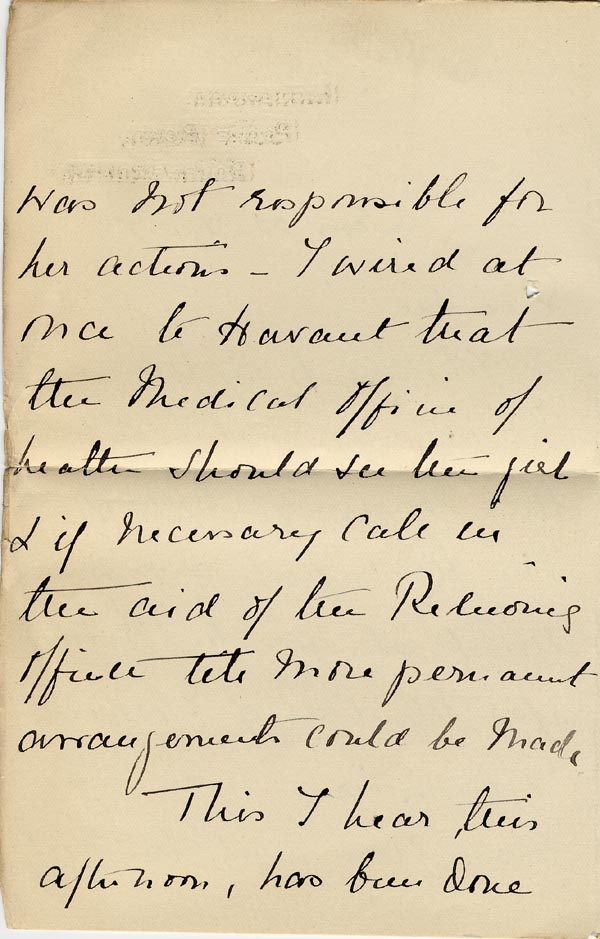 was not responsible for
her actions – I wired at
once to Havant that
the Medical Officer of
health should see the girl
& if necessary call in
the aid of the Relieving
Officer till more permanent
arrangements could be made
This I hear, this
afternoon, has been done